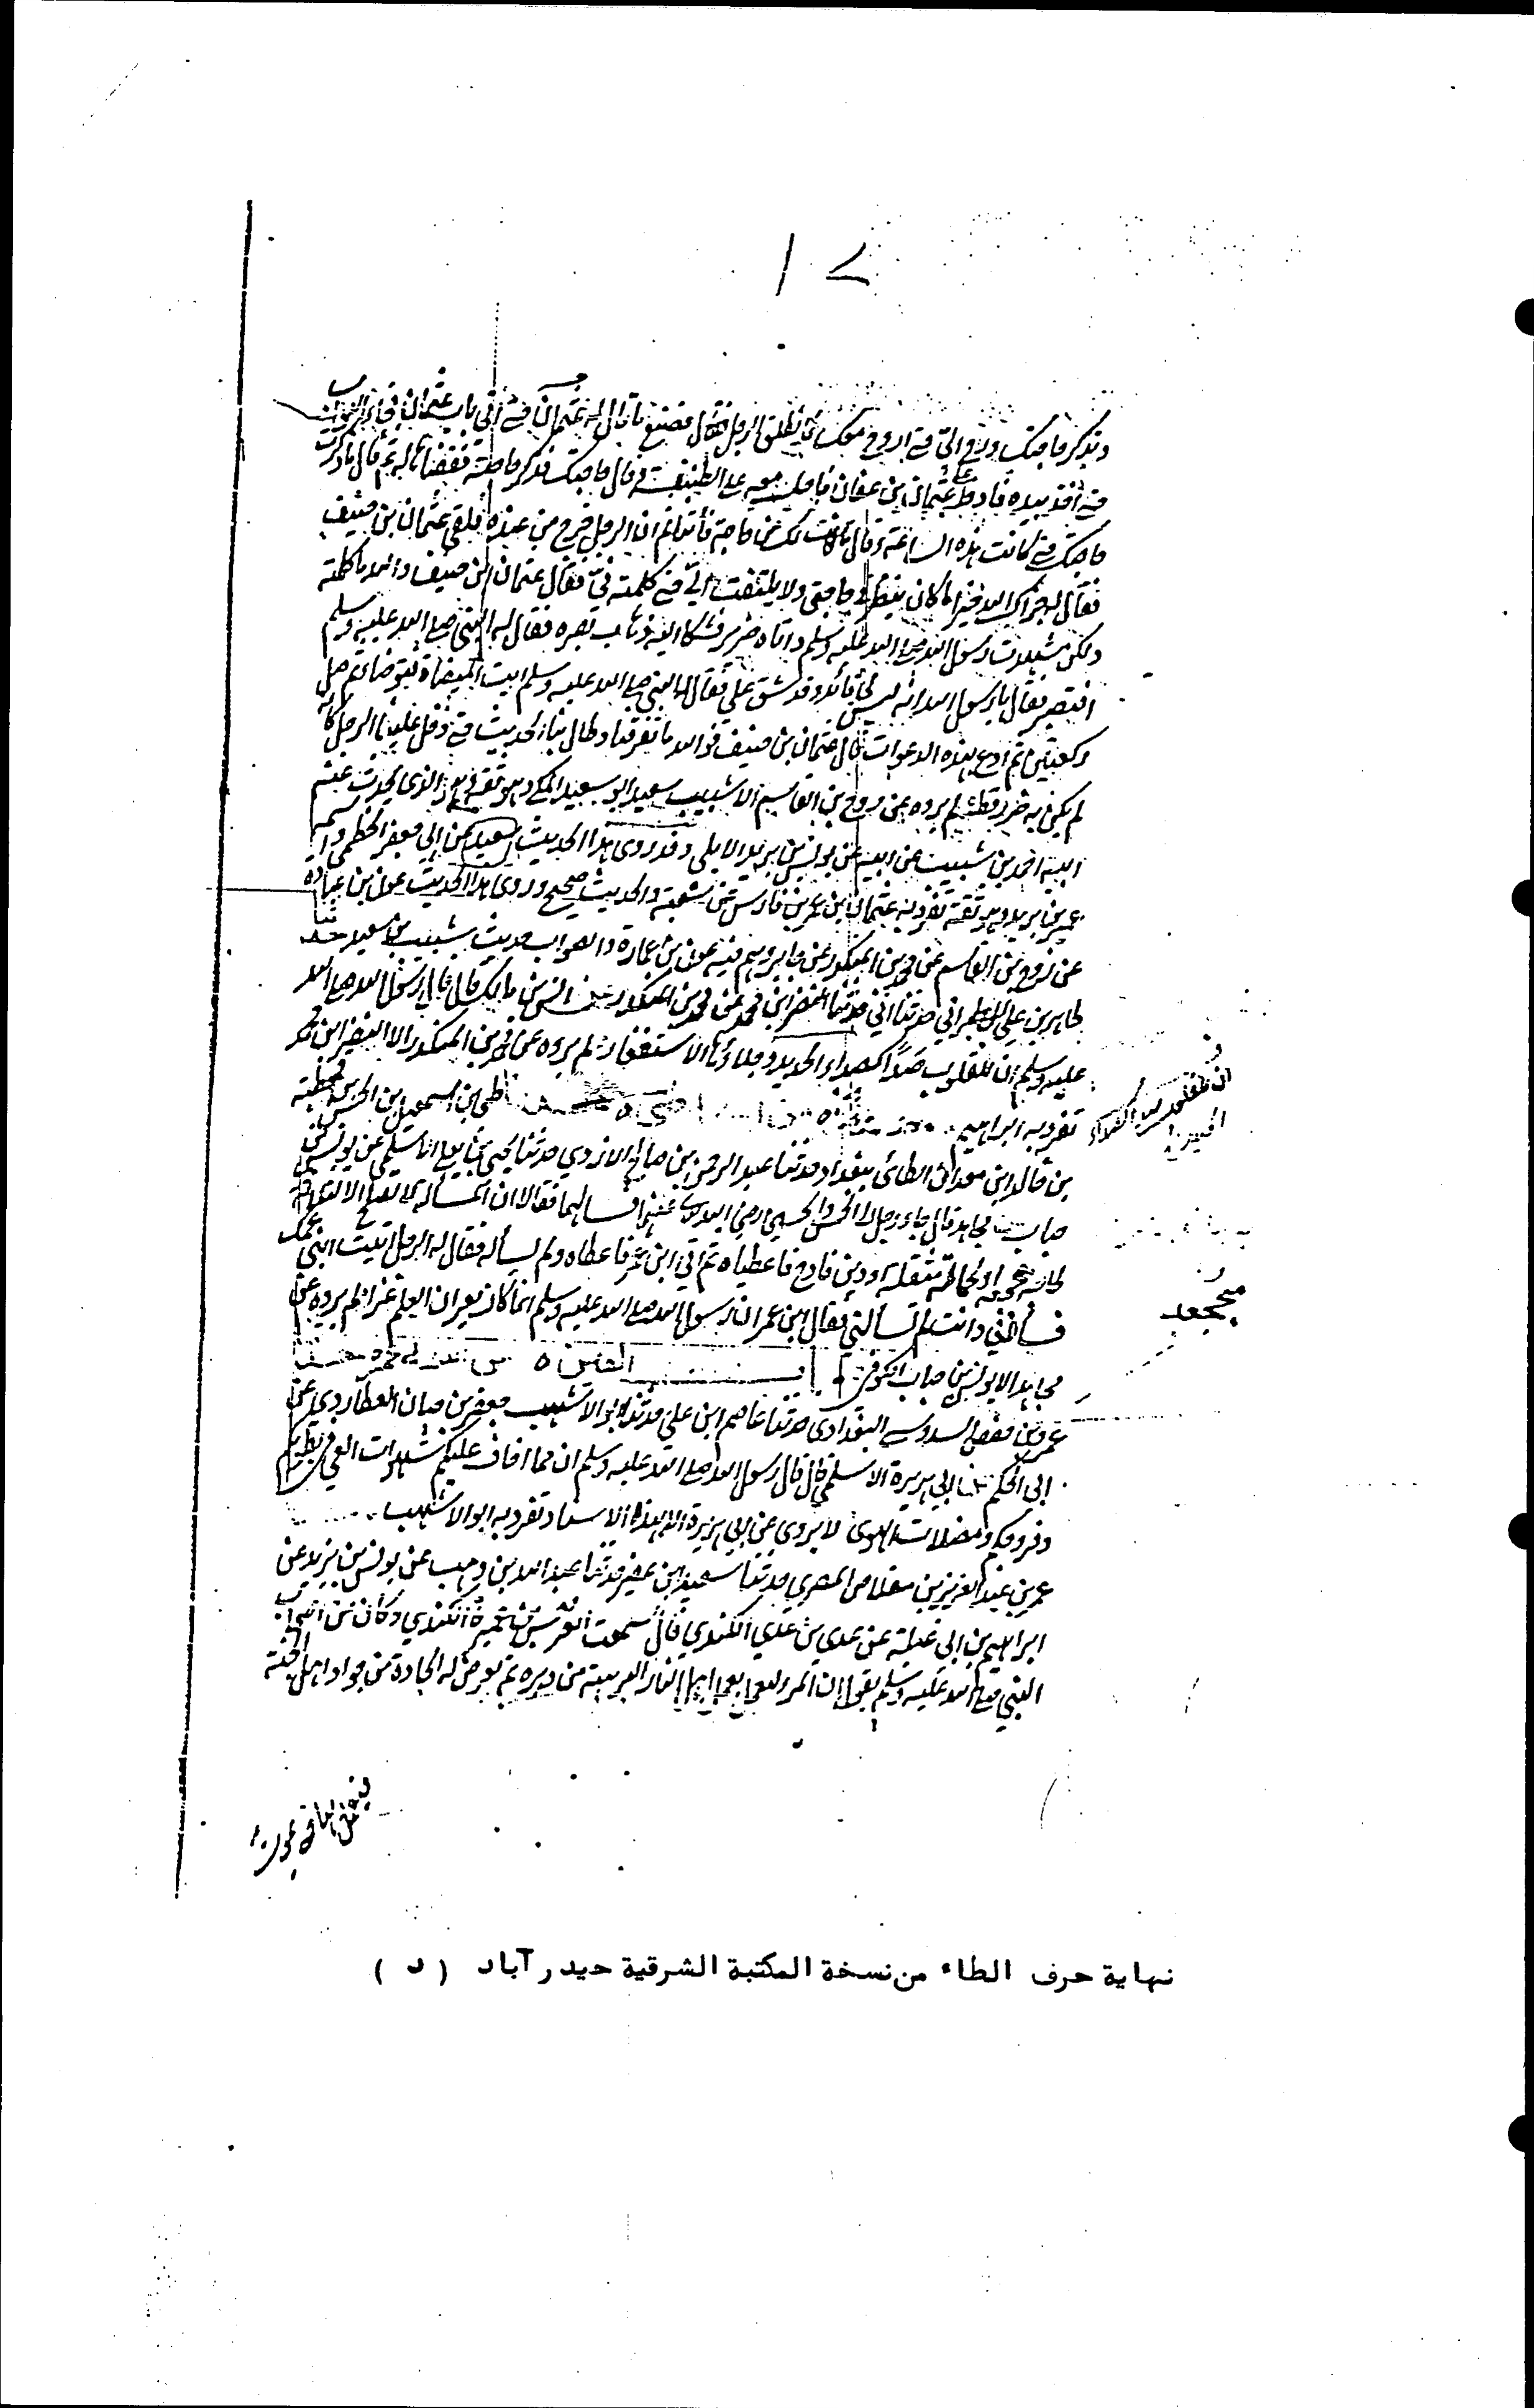 ١٧
وتذكر حاجتك ورح الي حتى اروح معك فانطلق الرجل فصنع ما قال له عثمان حتى اتى باب عثمان فجاء البواب
حتى اخذ بيده فادخله على عثمان بن عفان فاجلسه معه على الطنفسة وقال حاجتك فذكر حاجته فقضاها له ثم قال ما ذكرت
حاجتك حتى كانت هذه الساعة وقال ما كانت لك من حاجة فأتنا ثم ان الرجل خرج من عنده فلقي عثمان بن حنيف
فقال له جزاك الله خيرا ما كان ينظر في حاجتي ولا يلتفت الي حتى كلمته في فقال عثمان بن حنيف والله ما كلمته
ولكن شهدت رسول الله صلى الله عليه وسلم واتاه ضرير فشكا اليه ذهاب بصره فقال له النبي صلى الله عليه وسلم
افتصبر فقال يا رسول الله انه ليس لي قائد وقد شق علي فقال له النبي صلى الله عليه وسلم ايت الميضاة فتوضا ثم صل
ركعتين ثم ادع بهذه الدعوات قال عثمان بن حنيف فوالله ما تفرقنا وطال بنا الحديث حتى دخل علينا الرجل كانه
لم يكن به ضرر قط لم يروه عن روح بن القاسم الا شبيب بن سعيد ابو سعيد المكي وهو ثقة وهو الذي يحدث عنه
ابنه احمد بن شبيب عن ابيه عن يونس بن يزيد الايلي وقد روى هذا الحديث شعبة عن ابي جعفر الخطمي واسمه
عمير بن يزيد وهو ثقة تفرد به عثمان بن عمر بن فارس عن شعبة والحديث صحيح وروى هذا الحديث عون بن عمارة
عن روح بن القاسم عن محمد بن المنكدر عن جابر وهم فيه عون بن عمارة والصواب حديث شبيب بن سعيد حدثنا
طاهر بن علي الطبراني حدثنا ابي حدثنا النضر ابن محمد عن محمد بن المنكدر عن انس بن مالك قال قال رسول الله صلى الله
عليه وسلم ان للقلوب صدأ كصداء الحديد وجلاؤها الاستغفار لم يروه عن محمد بن المنكدر الا النضر ابن محمد
تفرد به ابراهيم طي بن اسمعيل بن الحسن بن قحطبة
بن خالد ابن معدان الطائي ببغداد حدثنا عبد الرحمن بن صالح الازدي حدثنا يحيى بن يعلى الاسلمي عن يونس بن
خباب عن مجاهد قال جاء رجل الى الحسن والحسين رضي الله عنهما فسالهما فقالا ان المسألة لا تصلح الا لثلاثة
لحاجة مجحفة او لحمالة مثقلة او دين فادح فاعطياه ثم اتى ابن عمر فاعطاه ولم يسأله فقال له الرجل اتيت ابني عمك
فسألاني وانت لم تسألني فقال ابن عمر ابنا رسول الله صلى الله عليه وسلم انما كانا يغران العلم غرا لم يروه عن
مجاهد الا يونس بن خباب الكوفي
عمرو بن مفضل السدوسي البغدادي حدثنا عاصم ابن علي حدثنا ابو الاشهب جعفر بن حيان العطاردي عن
ابي الحكم عن ابي برزة الاسلمي قال قال رسول الله صلى الله عليه وسلم ان مما اخاف عليكم شهوات الغي في بطونكم
وفروجكم ومضلات الهوى لا يروى عن ابي برزة الا بهذا الاسناد تفرد به ابو الاشهب
عمر بن عبد العزيز بن مقلاص المصري حدثنا سعيد ابن عفير حدثنا عبد الله بن وهب عن يونس بن يزيد عن
ابراهيم بن ابي عبلة عن عدي بن عدي الكندي قال سمعت العرس بن عميرة الكندي وكان من اصحاب
النبي صلى الله عليه وسلم يقول ان المرء ليعمل بعمل اهل النار البرهة من دهره ثم تعرض له الجادة من جواد اهل الجنة
نهاية حرف الطاء من نسخة المكتبة الشرقية حيدر آباد (د)